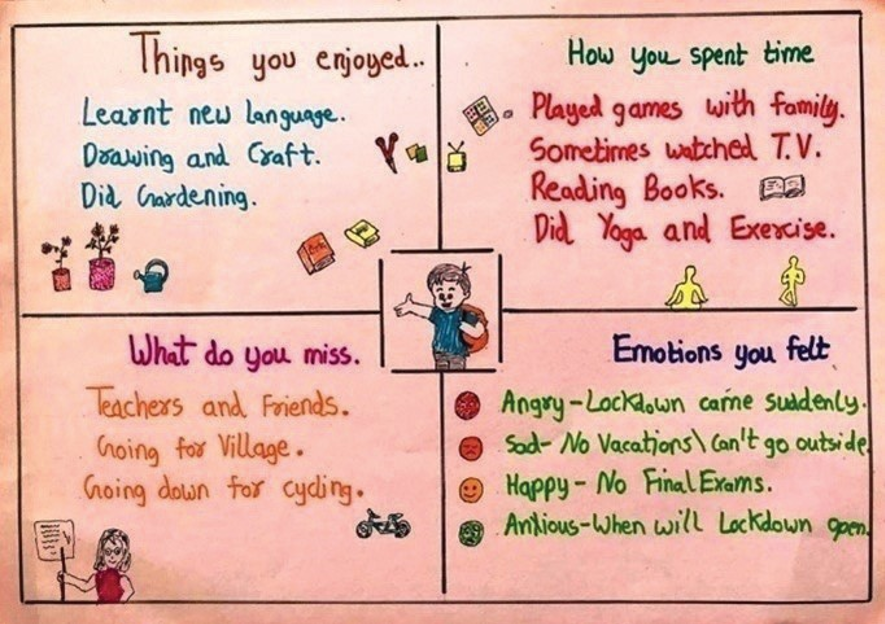 Things you enjoyed..
Learnt new language.
Drawing and Craft.
Did Gardening.
How you spent time
Played games with family.
Sometimes watched T.V.
Reading Books.
Did Yoga and Exercise.
What do you miss.
Teachers and Friends.
Going for Village.
Going down for cycling.
Emotions you felt
Angry-Lockdown came suddenly.
Sad- No Vacations\Can't go outside
Happy- No Final Exams.
Anxious-When will Lockdown open.